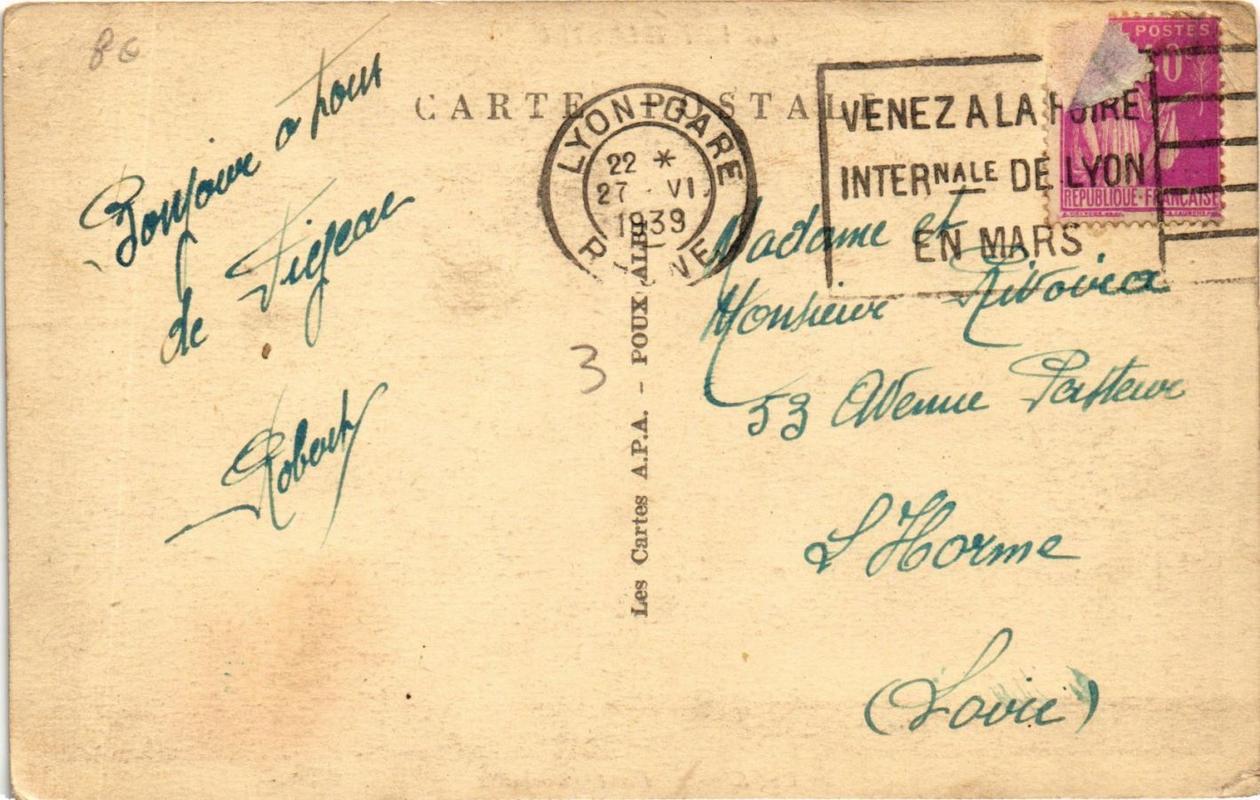 CARTE POSTALE
Bonjour a tous
de Figeac
Robert
LYON-GARE
22 *
27 VI
1939
VENEZ A LA FOIRE
INTERNALE DE LYON
EN MARS
POSTES
REPUBLIQUE-FRANCAISE
Les Cartes A.P.A. - POUX ALBI
3
Madame et
Monsieur
53 Avenue Pasteur
L'Horme
(Loire)